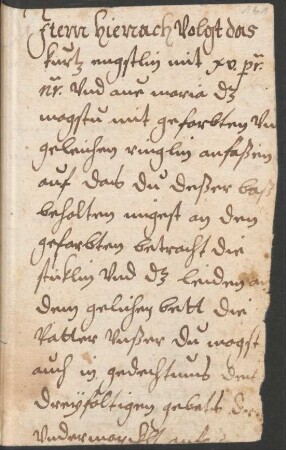 161
Item hienach volgt das
kurtz engstlin mit xv pr̃
nr̃. Vnd aue maria dz
magstu mit gefarbten Vn
geleichen ringlin anfaßen
auf das du deßer baß
behalten migest an den
gefarbten betracht die
stücklin Vnd dz leiden an
dem gelichen bett die
Vatter Vnßer du magst
auch in gedechtnus den
dreyfoltigen gebetts
Vndermar